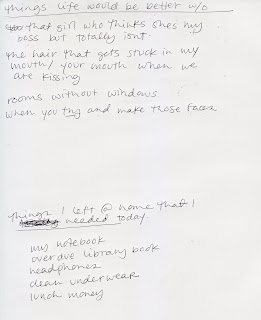 things life would be better w/o
that girl who thinks shes my
boss but totally isnt
the hair that gets stuck in my
mouth / your mouth when we
are kissing
rooms without windows
when you try and make those faces
things I left @ home that I
needed today
my notebook
overdue library book
headphones
clean underwear
lunch money